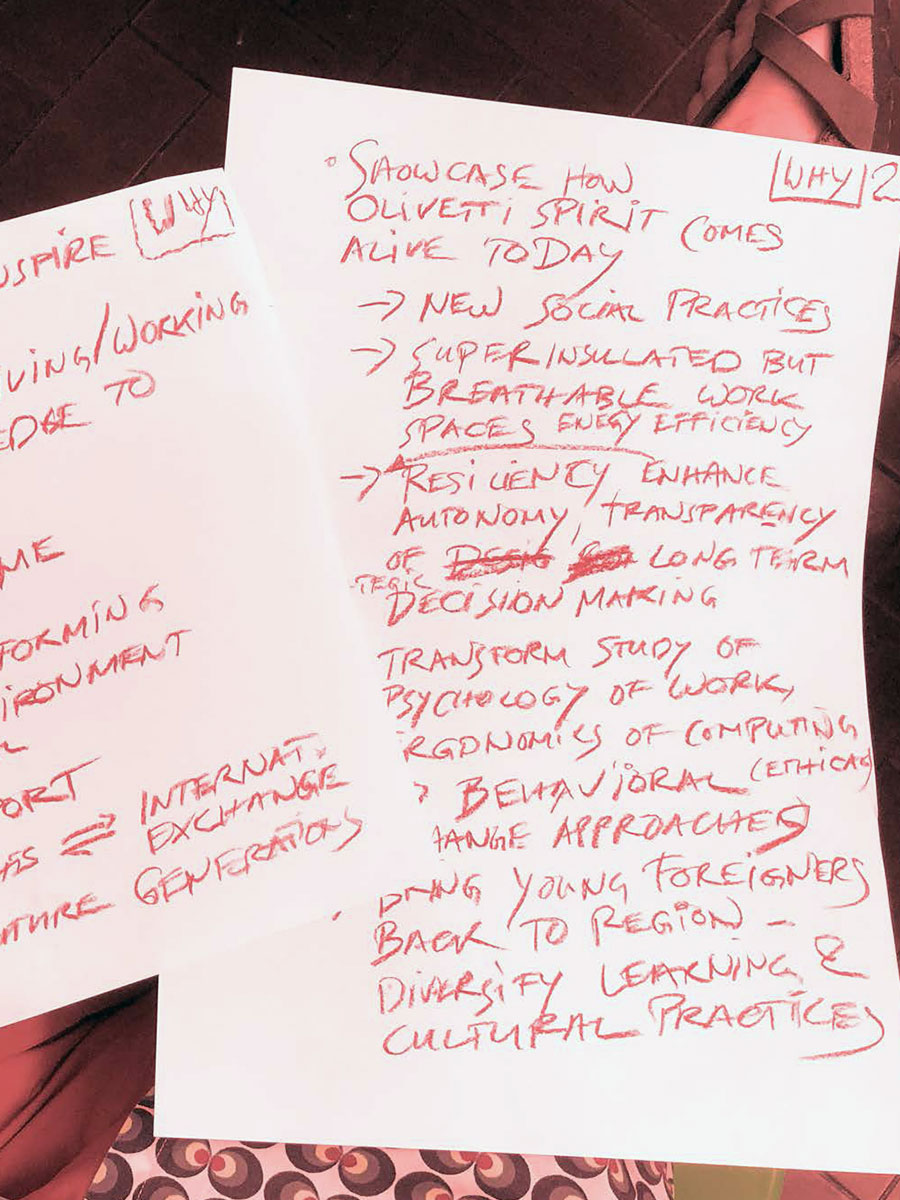 NSPIRE [WHY]
IVING/WORKING
EDGE TO
ME
FORMING
IRONMENT
L
PORT
⇌ INTERNAT.
EXCHANGE
UTURE GENERATIONS
[WHY] 2
• SHOWCASE HOW
OLIVETTI SPIRIT COMES
ALIVE TODAY
→ NEW SOCIAL PRACTICES
→ SUPERINSULATED BUT
BREATHABLE WORK
SPACES ENEGY EFFICIENCY
→ RESILIENCY ENHANCE
AUTONOMY, TRANSPARENCY
OF LONG TERM
-TEGIC
DECISION MAKING
TRANSFORM STUDY OF
PSYCHOLOGY OF WORK,
RGONOMICS OF COMPUTING
> BEHAVIORAL (ETHICAL)
HANGE APPROACHES
BRING YOUNG FOREIGNERS
BACK TO REGION –
DIVERSIFY LEARNING &
CULTURAL PRACTICES